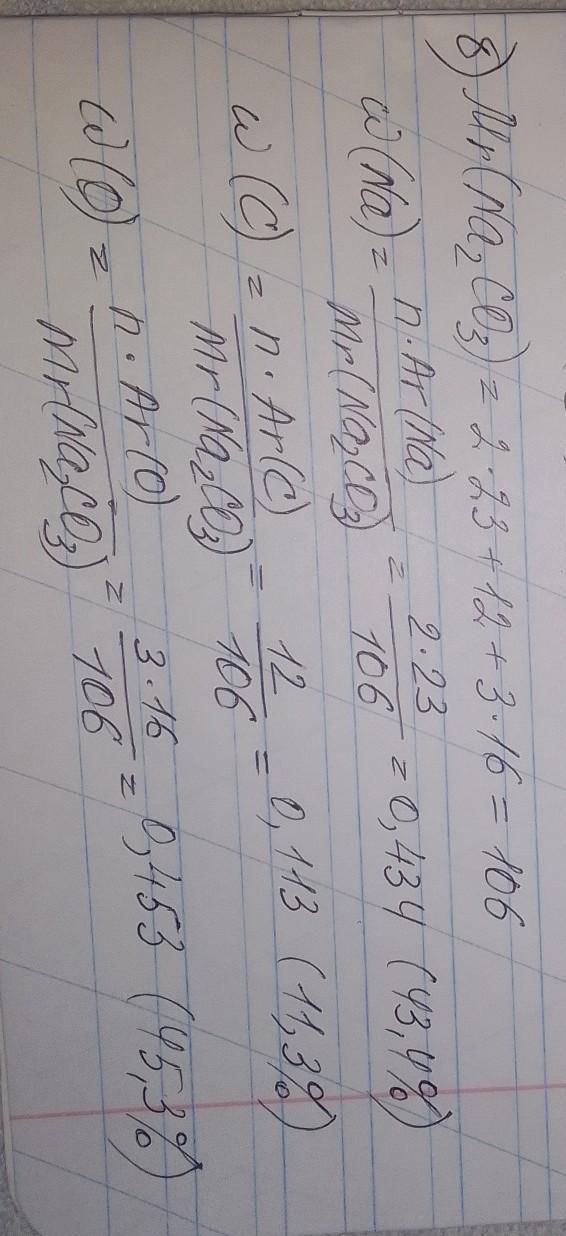 б) Mr(Na₂CO₃) = 2·23 + 12 + 3·16 = 106
ω(Na) = n·Ar(Na) / Mr(Na₂CO₃) = 2·23 / 106 = 0,434 (43,4%)
ω(C) = n·Ar(C) / Mr(Na₂CO₃) = 12 / 106 = 0,113 (11,3%)
ω(O) = n·Ar(O) / Mr(Na₂CO₃) = 3·16 / 106 = 0,453 (45,3%)